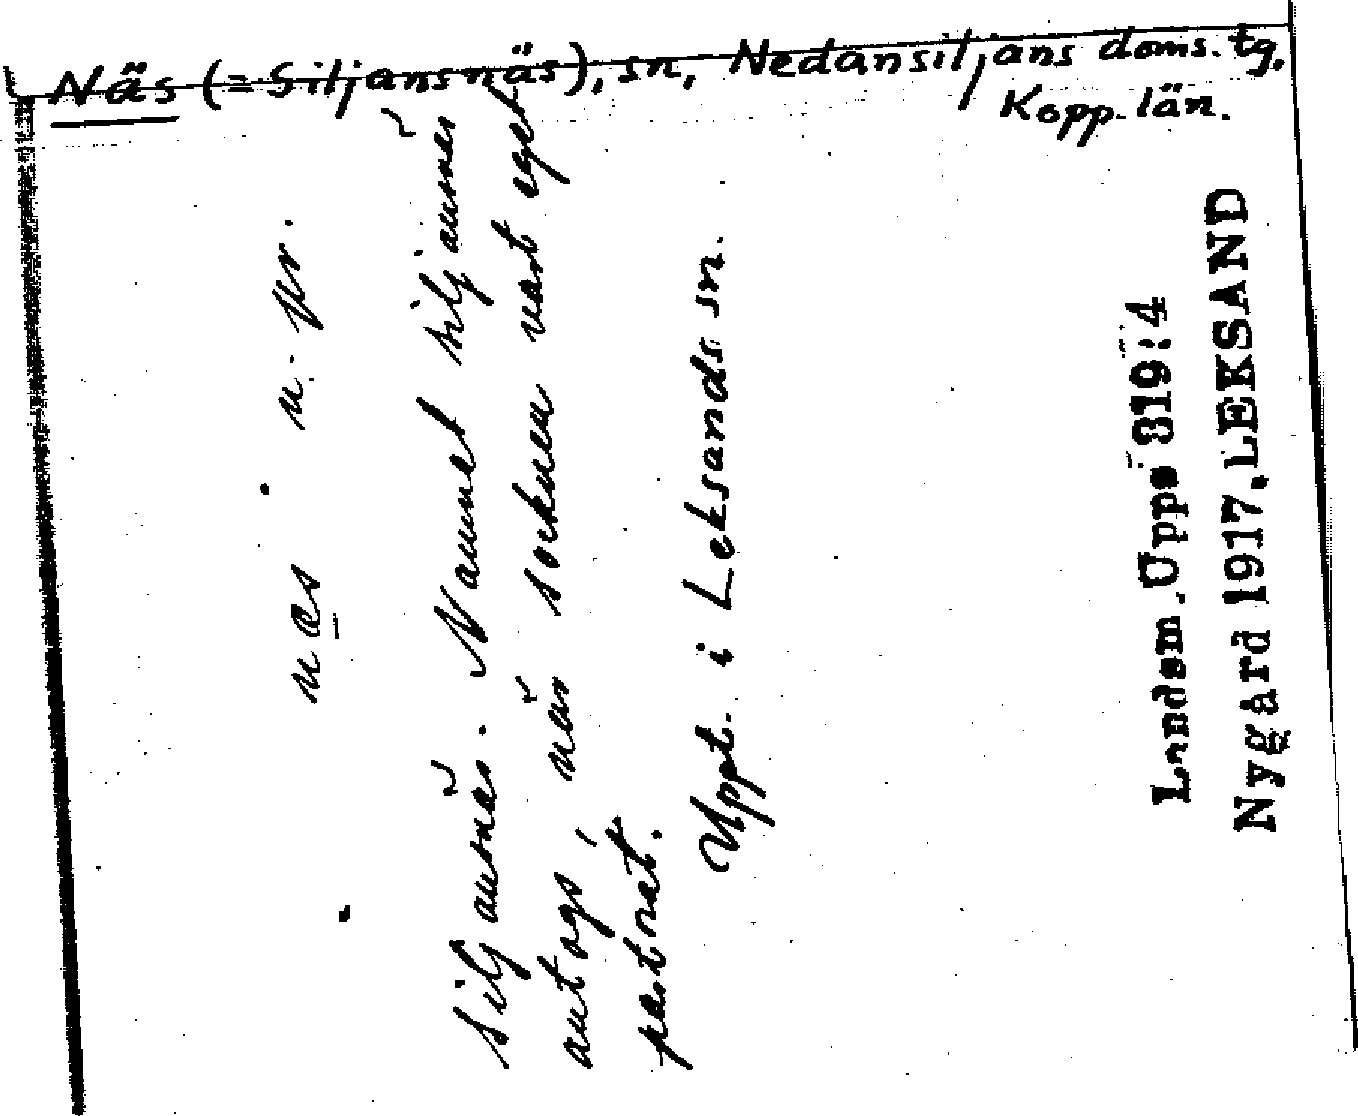 Näs (= Siljansnäs), sn, Nedansiljans doms. tg,
Kopp. län.
næs n. pr.
Siljansnäs. Namnet Siljansnäs
antogs, när socknen vart eget
pastorat.
Uppt. i Leksands sn.
Landsm. Upps 319:4
Nygård 1917. LEKSAND